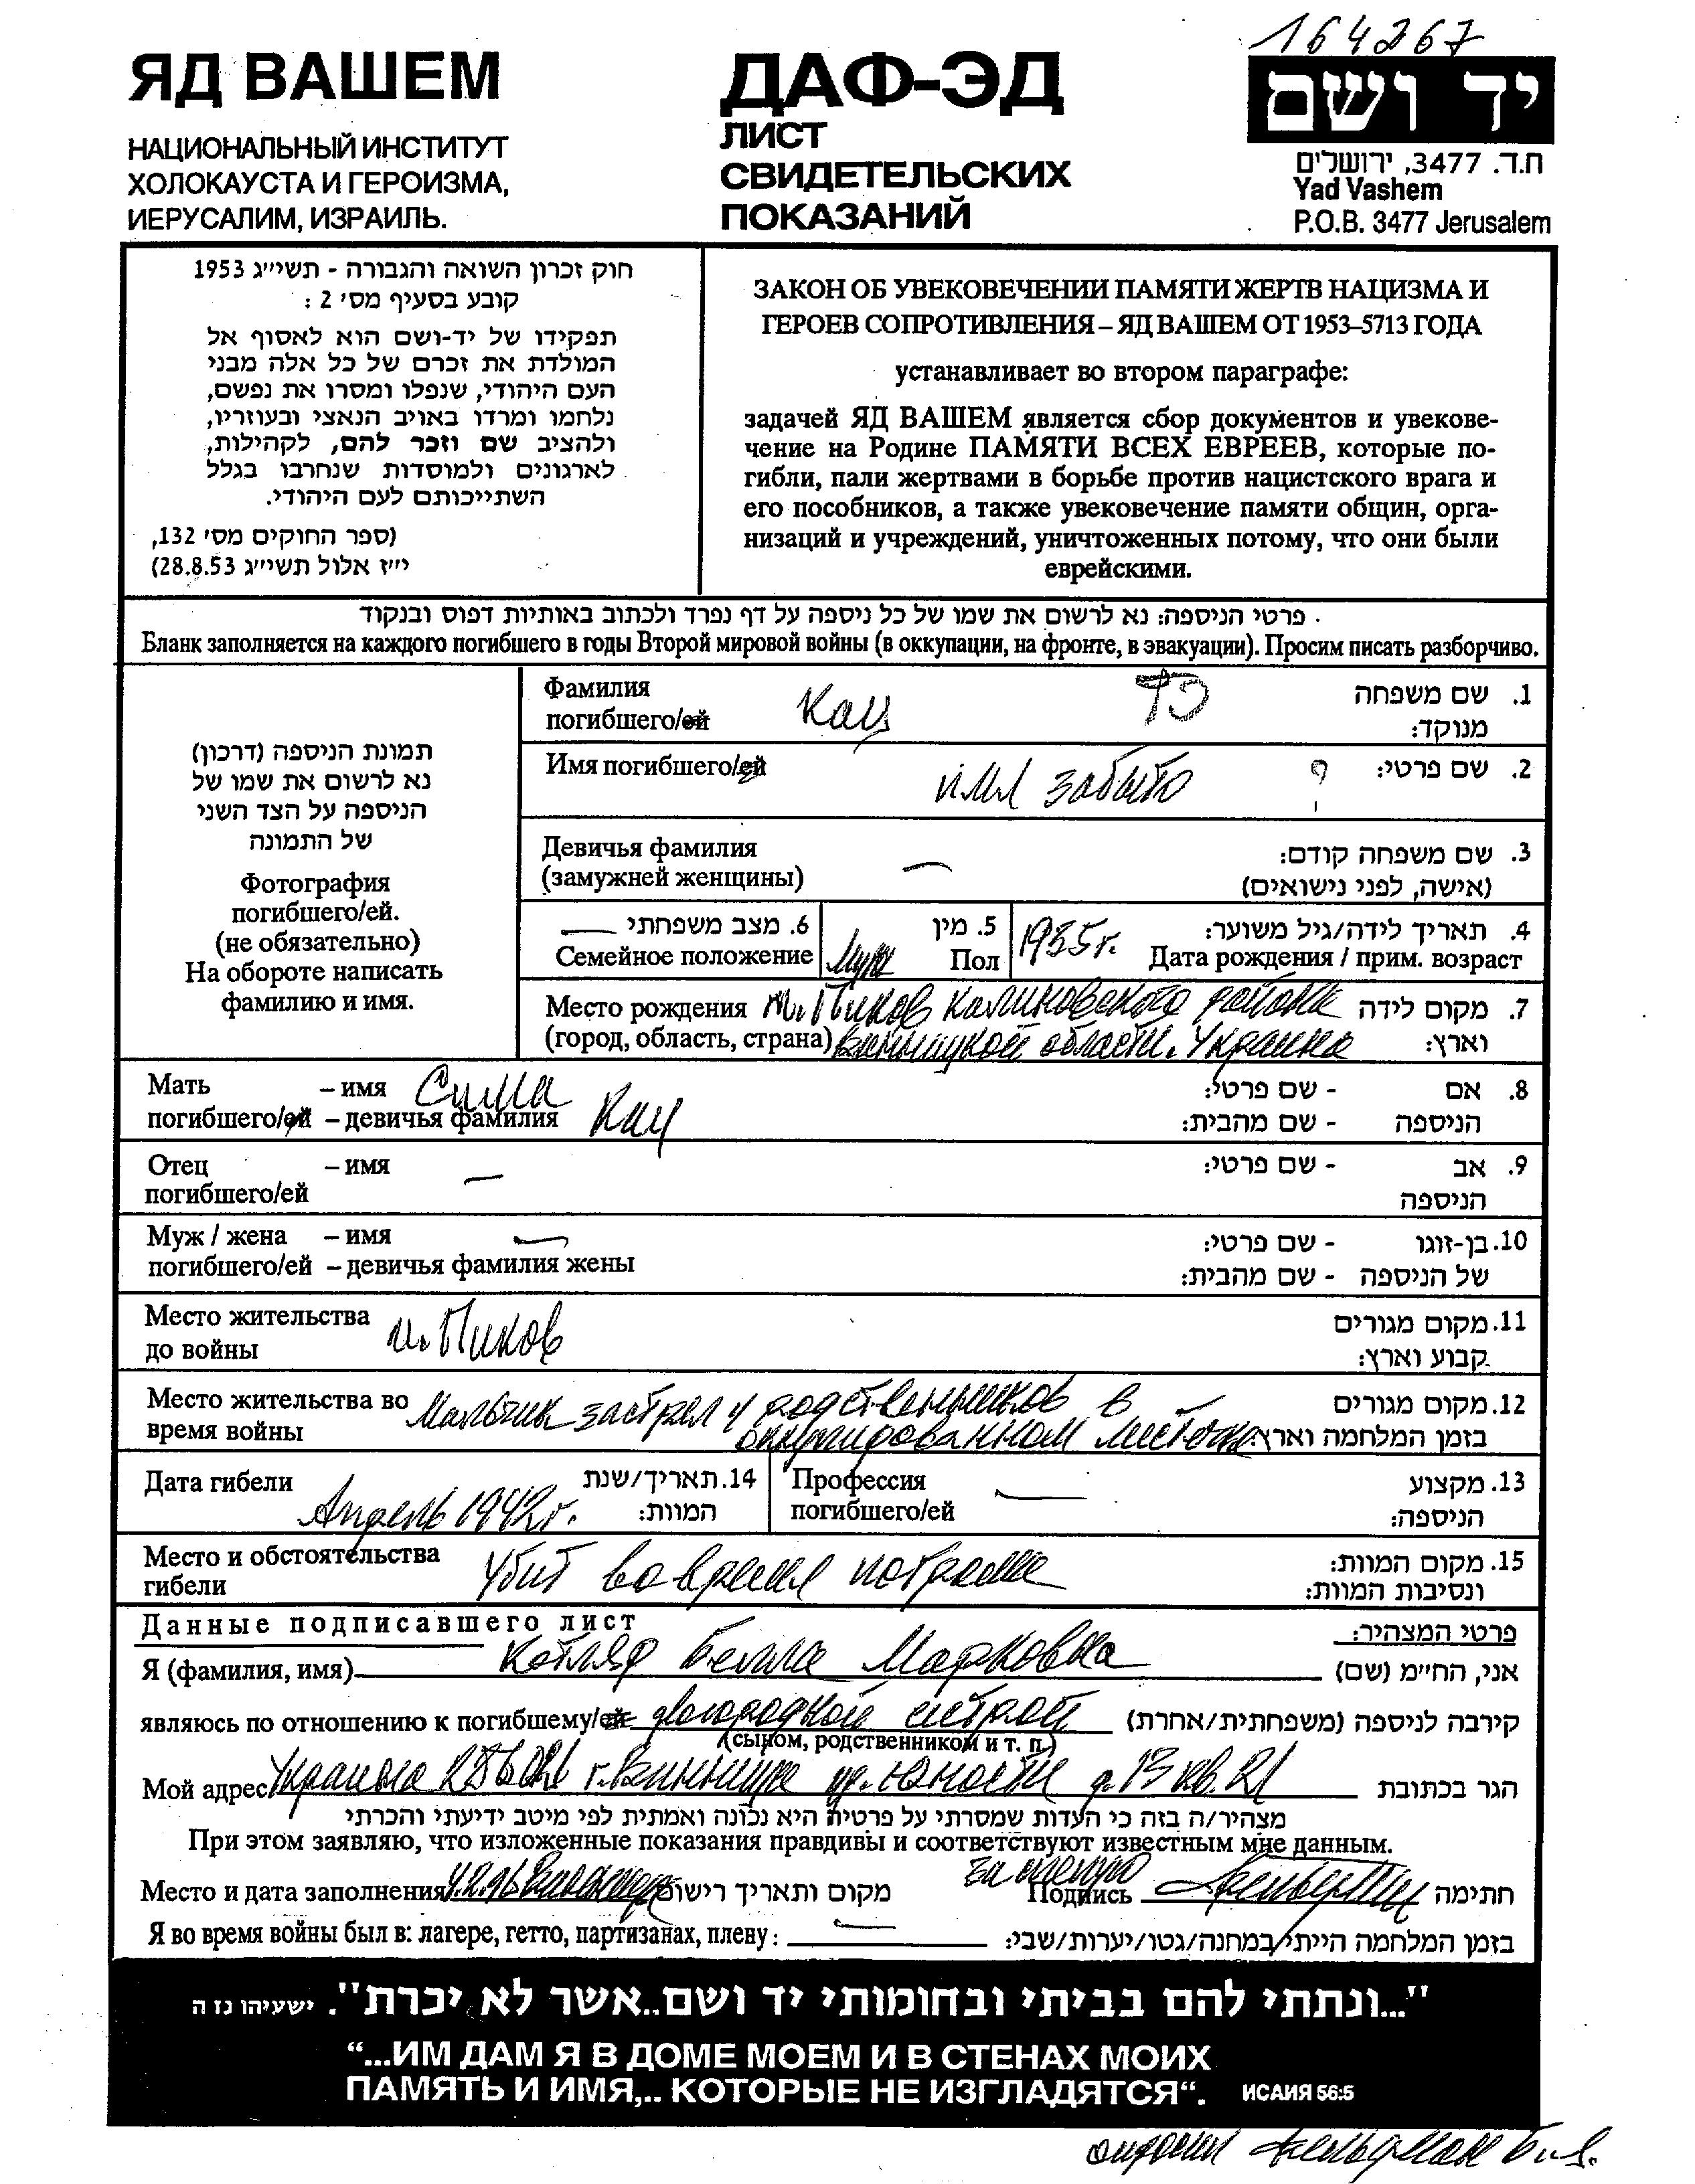 164267
ЯД ВАШЕМ
НАЦИОНАЛЬНЫЙ ИНСТИТУТ
ХОЛОКАУСТА И ГЕРОИЗМА,
ИЕРУСАЛИМ, ИЗРАИЛЬ.
ДАФ-ЭД
ЛИСТ
СВИДЕТЕЛЬСКИХ
ПОКАЗАНИЙ
יד ושם
ת.ד. 3477, ירושלים
Yad Vashem
P.O.B. 3477 Jerusalem
חוק זכרון השואה והגבורה - תשי״ג 1953
קובע בסעיף מס׳ 2 :
תפקידו של יד-ושם הוא לאסוף אל
המולדת את זכרם של כל אלה מבני
העם היהודי, שנפלו ומסרו את נפשם,
נלחמו ומרדו באויב הנאצי ובעוזריו,
ולהציב שם וזכר להם, לקהילות,
לארגונים ולמוסדות שנחרבו בגלל
השתייכותם לעם היהודי.
(ספר החוקים מס׳ 132,
י״ז אלול תשי״ג 28.8.53)
ЗАКОН ОБ УВЕКОВЕЧЕНИИ ПАМЯТИ ЖЕРТВ НАЦИЗМА И
ГЕРОЕВ СОПРОТИВЛЕНИЯ – ЯД ВАШЕМ ОТ 1953–5713 ГОДА
устанавливает во втором параграфе:
задачей ЯД ВАШЕМ является сбор документов и увекове-
чение на Родине ПАМЯТИ ВСЕХ ЕВРЕЕВ, которые по-
гибли, пали жертвами в борьбе против нацистского врага и
его пособников, а также увековечение памяти общин, орга-
низаций и учреждений, уничтоженных потому, что они были
еврейскими.
פרטי הניספה: נא לרשום את שמו של כל ניספה על דף נפרד ולכתוב באותיות דפוס ובנקוד
Бланк заполняется на каждого погибшего в годы Второй мировой войны (в оккупации, на фронте, в эвакуации). Просим писать разборчиво.
תמונת הניספה (דרכון)
נא לרשום את שמו של
הניספה על הצד השני
של התמונה
Фотография
погибшего/ей.
(не обязательно)
На обороте написать
фамилию и имя.
Фамилия
погибшего/ей Кац כץ 1. שם משפחה
מנוקד:
Имя погибшего/ей имя забыто ? 2. שם פרטי:
Девичья фамилия — 3. שם משפחה קודם:
(замужней женщины) (אישה, לפני נישואים)
6. מצב משפחתי — 5. מין 1935г. 4. תאריך לידה/גיל משוער:
Семейное положение Муж Пол Дата рождения / прим. возраст
Место рождения м. Пиков Калиновского района 7. מקום לידה
(город, область, страна) Винницкой области. Украина וארץ:
Мать – имя Сима 8. אם - שם פרטי:
погибшего/ей – девичья фамилия Кац הניספה - שם מהבית:
Отец – имя — 9. אב - שם פרטי:
погибшего/ей הניספה
Муж / жена – имя — 10. בן-זוגו - שם פרטי:
погибшего/ей – девичья фамилия жены של הניספה - שם מהבית:
Место жительства 11. מקום מגורים
до войны м. Пиков קבוע וארץ:
Место жительства во Мальчик застрял у родственников в 12. מקום מגורים
время войны оккупированном местечке בזמן המלחמה וארץ:
Дата гибели Апрель 1942г. 14. תאריך/שנת
המוות:
Профессия — 13. מקצוע
погибшего/ей הניספה:
Место и обстоятельства Убит во время погрома 15. מקום המוות:
гибели ונסיבות המוות:
Данные подписавшего лист פרטי המצהיר:
Я (фамилия, имя) Котляр Белла Марковна אני, הח״מ (שם)
являюсь по отношению к погибшему/ей двоюродной сестрой קירבה לניספה (משפחתית/אחרת)
(сыном, родственником и т. п.)
Мой адрес Украина г. Винница ул. Юности д. 13 кв. 21 הגר בכתובת
מצהיר/ה בזה כי העדות שמסרתי על פרטיה היא נכונה ואמתית לפי מיטב ידיעתי והכרתי
При этом заявляю, что изложенные показания правдивы и соответствуют известным мне данным.
Место и дата заполнения מקום ותאריך רישום Подпись חתימה
Я во время войны был в: лагере, гетто, партизанах, плену: — בזמן המלחמה הייתי במחנה/גטו/יערות/שבי:
"...ונתתי להם בביתי ובחומותי יד ושם..אשר לא יכרת". ישעיהו נז ה
“...ИМ ДАМ Я В ДОМЕ МОЕМ И В СТЕНАХ МОИХ
ПАМЯТЬ И ИМЯ,.. КОТОРЫЕ НЕ ИЗГЛАДЯТСЯ“. ИСАИЯ 56:5